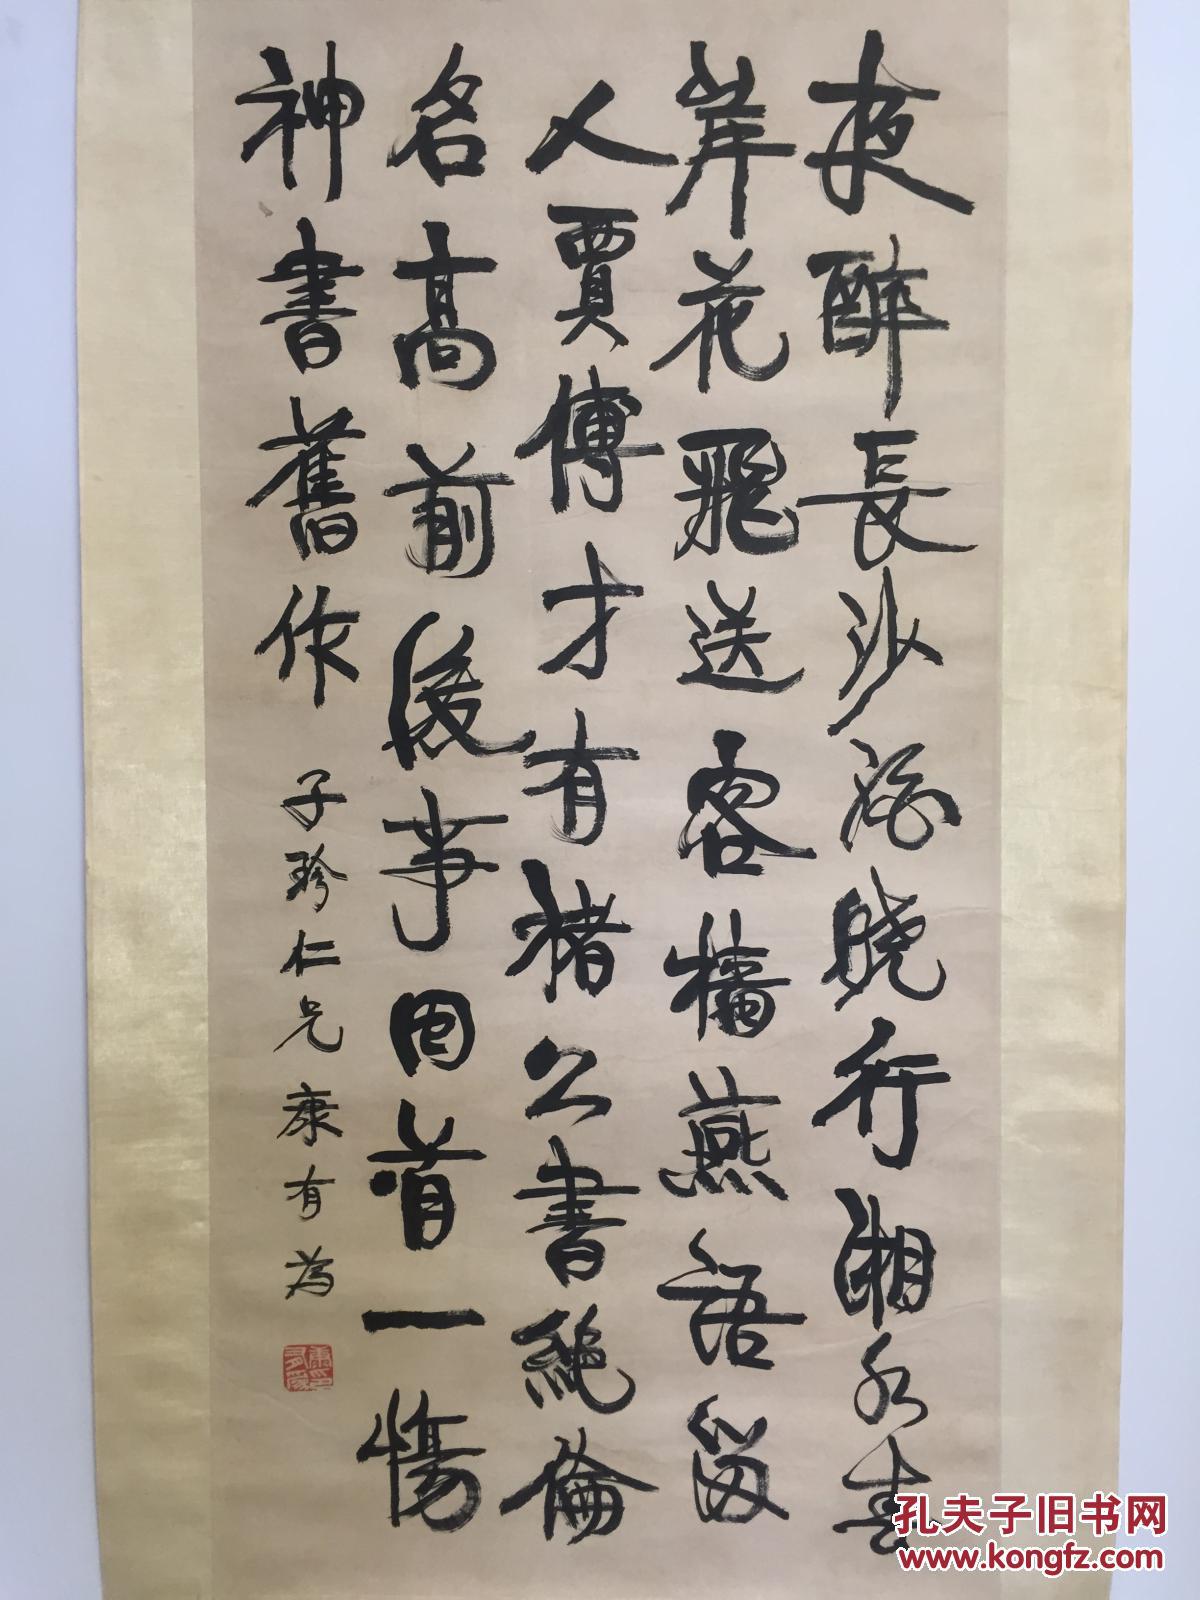 夜醉長沙酒曉行湘水春
岸花飛送客檣燕語留
人賈傅才有褚公書絕倫
名高前後事回首一傷
神書舊作 子珍仁兄 康有為
康印有為
孔夫子旧书网
www.kongfz.com